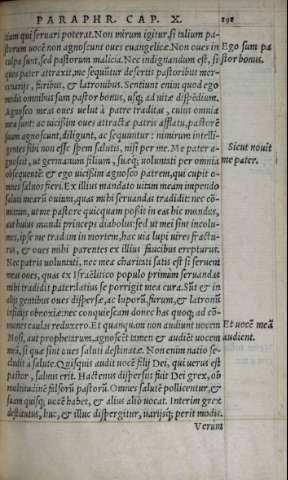 PARAPHR. CAP. X. 198
tiam qui seruari poterat. Non mirum igitur si talium pa-
storum uocē non agnoscunt oues euangelicæ. Non oues in
Ego sum pa
culpa sunt, sed pastorum malicia. Nec indignandum est, si
stor bonus.
quos pater attraxit, me sequūtur desertis pastoribus mer-
cenarijs, furibus, & latronibus. Sentiunt enim quod ego
modis omnibus sum pastor bonus, usq; ad uitæ dispēdium.
Agnosco meas oues uelut à patre traditas, cuius omnia
mea sunt: ac uicissim oues attractæ patris afflatu, pastorē
suum agnoscunt, diligunt, ac sequuntur: nimirum intelli-
gentes sibi non esse spem salutis, nisi per me. Me pater a-
Sicut nouit
gnoscit, ut germanum filium, suæq; uoluntati per omnia
me pater.
obsequentē: & ego uicissim agnosco patrem, qui cupit o-
mnes saluos fieri. Ex illius mandato uitam meam impendo
saluti mearū ouium, quas mihi seruandas tradidit: nec cō-
mittam, ut me pastore quicquam possit in eas hic mundus,
aut huius mundi princeps diabolus: sed ut mei sint incolu-
mes, ipse me tradam in mortem, hac uia lupi uires fractu-
rus, & oues mihi parentes ex illius faucibus erepturus.
Nec patris uoluntati, nec meæ charitati satis est si seruem
meas oues, quas ex Israëlitico populo primùm seruandas
mihi tradidit pater: latius se porrigit mea cura. Sūt & in
alijs gentibus oues dispersæ, ac luporū, furum, & latronū
insidijs obnoxiæ: nec conquiescam donec has quoq; ad cō-
munes caulas reduxero. Et quanquam non audiunt uocem
Et uocē meā
Mosi, aut prophetarum, agnoscēt tamen & audiēt uocem
audient.
meā, si quæ sint oues saluti destinatæ. Non enim natio se-
cludit à salute. Quisquis audit uocē filij Dei, qui uerus est
pastor, saluus erit. Hactenus dispersus fuit Dei grex, ob
multitudinē falsorū pastorū. Omnes salutē pollicentur, &
suam quisq; uocē habet, & alius aliò uocat. Interim grex
destitutus, huc, & illuc dispergitur, uarijsq; perit modis.
Verùm